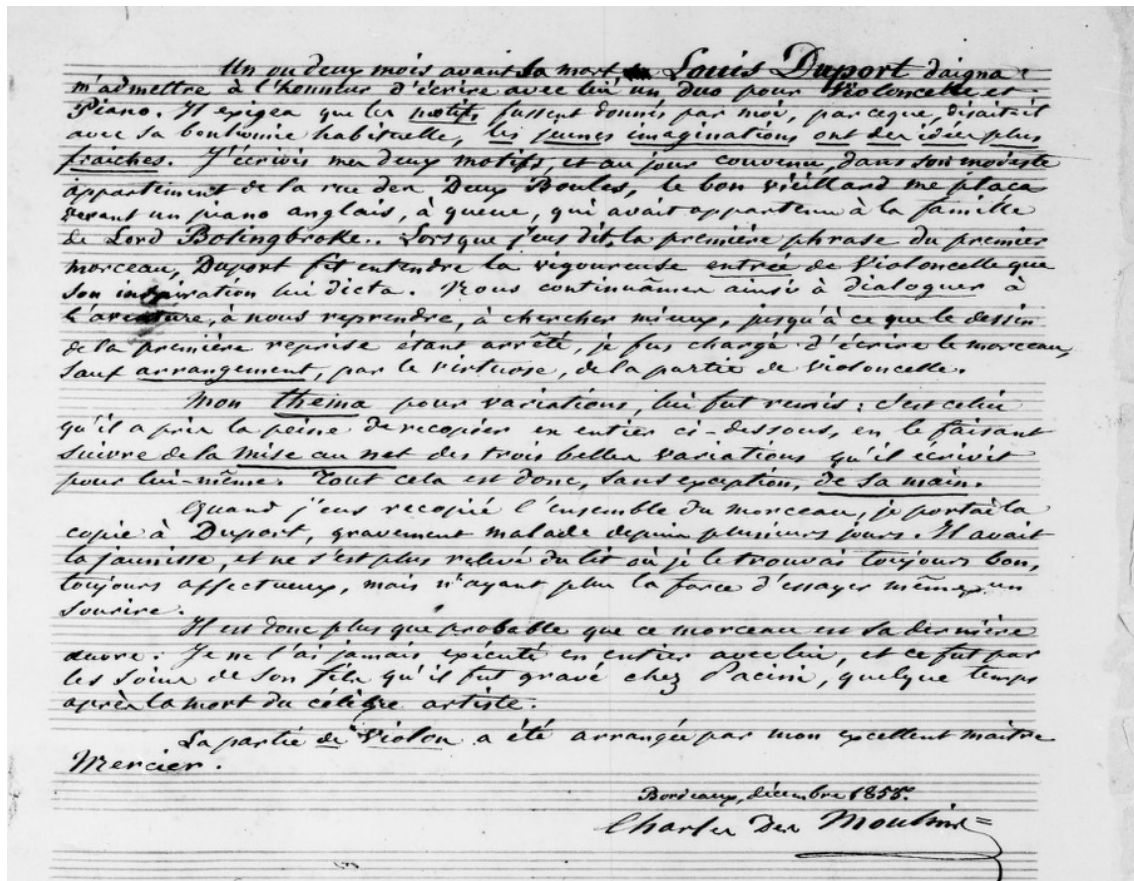 Un ou deux mois avant sa mort, Louis Duport daigna
m'admettre à l'honneur d'écrire avec lui un duo pour Violoncelle et
Piano. Il exigea que les motifs fussent donnés par moi, parceque, disait-il
avec sa bonhomie habituelle, les jeunes imaginations ont des idées plus
fraîches. J'écrivis mes deux motifs, et au jour convenu, dans son modeste
appartement de la rue des Deux Boules, le bon vieillard me plaça
devant un piano anglais, à queue, qui avait appartenu à la famille
de Lord Bolingbroke.. Lorsque j'eus dit, la première phrase du premier
morceau, Duport fit entendre la vigoureuse entrée de Violoncelle que
son inspiration lui dicta. Nous continuâmes ainsi à dialoguer à
à nous reprendre, à chercher mieux, jusqu'à ce que le dessin
de la première reprise étant arrêté, je fus chargé d'écrire le morceau,
sauf arrangement, par le virtuose, de la partie de Violoncelle.
Mon thema pour variations, lui fut remis : c'est celui
qu'il a pris la peine de recopier en entier ci-dessous, en le faisant
suivre de la mise au net des trois belles variations qu'il écrivit
pour lui-même. Tout cela est donc, sans exception, de sa main.
Quand j'eus recopié l'ensemble du morceau, je portai la
copie à Duport, gravement malade depuis plusieurs jours. Il avait
la jaunisse, et ne s'est plus relevé du lit où je le trouvai toujours bon,
toujours affectueux, mais n'ayant plus la force d'essayer même un
sourire.
Il est donc plus que probable que ce morceau est sa dernière
œuvre. Je ne l'ai jamais exécuté en entier avec lui, et ce fut par
les soins de son fils qu'il fut gravé chez Pacini, quelque temps
après la mort du célèbre artiste.
La partie de Violon a été arrangée par mon excellent maître
Mercier.
Bordeaux, décembre 1855.
Charles Des Moulins